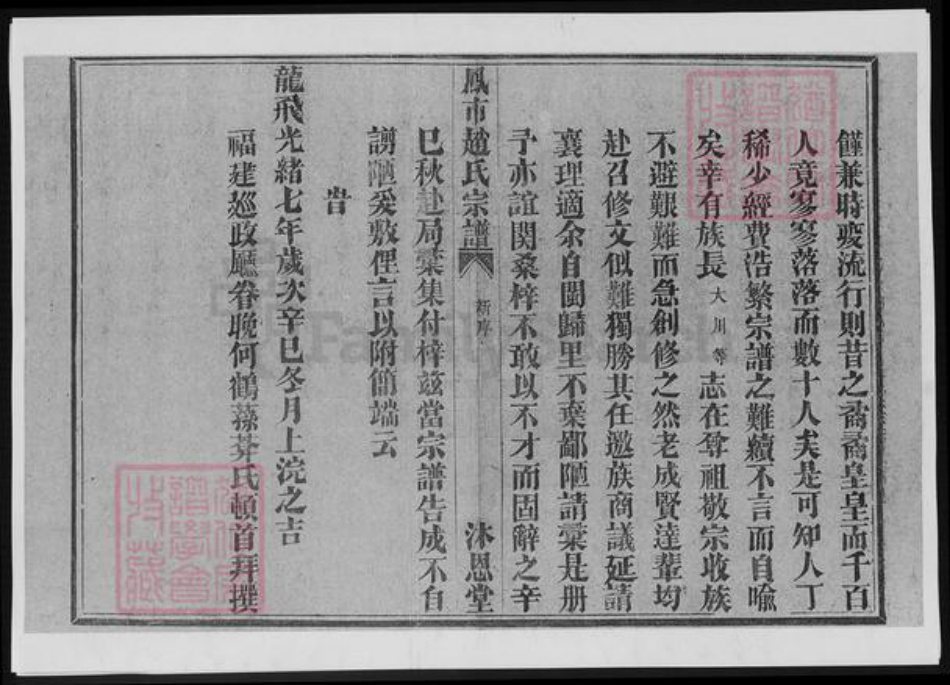 饉兼時疫流行則昔之矞矞皇皇而千百
人竟寥寥落落而數十人矣是可知人丁
稀少經費浩繁宗譜之難續不言而自喻
矣幸有族長大川等志在尊祖敬宗收族
不避艱難而急創修之然老成賢達輩均
赴召修文似難獨勝其任邀族商議延請
襄理適余自閩歸里不棄鄙陋請彚是册
予亦誼関桑梓不敢以不才而固辭之辛
鳳市趙氏宗譜 新序 沐恩堂
巳秋赴局彚集付梓兹當宗譜告成不自
謭陋爰敷俚言以附簡端云
告
龍飛光緒七年歲次辛巳冬月上浣之吉
福建廵政廳眷晚何鶴蓀芥氏頓首拜撰